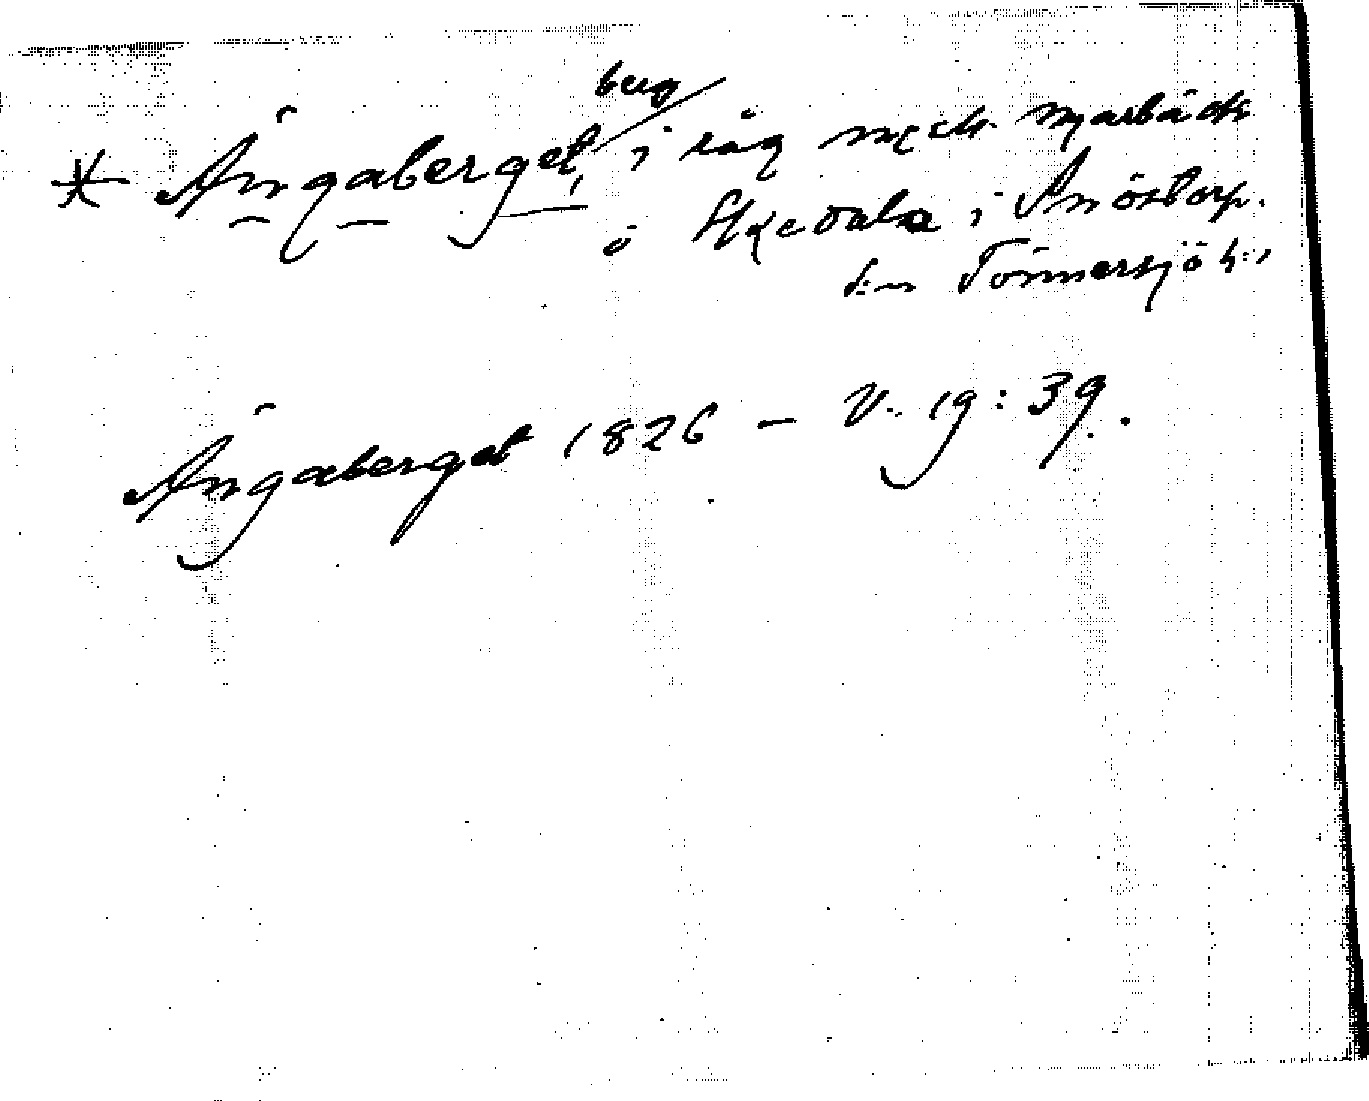 berg
* Ängaberget, i råg mellan Marbäck
o Skedala i Snöstorp.
s:n Tönnersjö h:d
Ängaberget 1826 – V. 19:39.